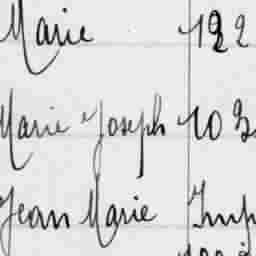 Marie 122
Marie Joseph 103
Jean Marie